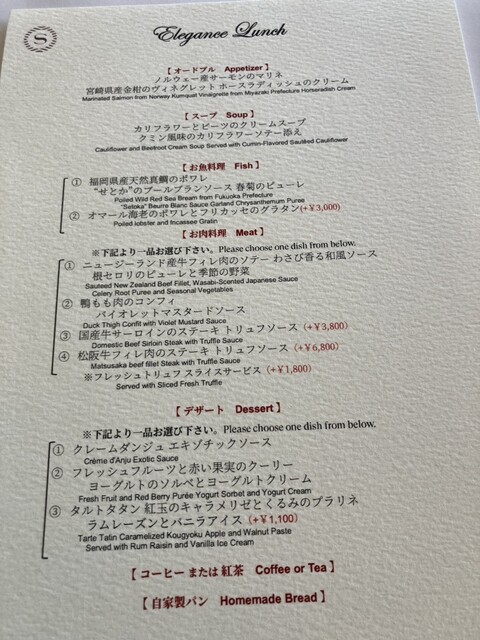 S
Elegance Lunch
【 オードブル Appetizer 】
ノルウェー産サーモンのマリネ
宮崎県産金柑のヴィネグレット ホースラディッシュのクリーム
Marinated Salmon from Norway Kumquat Vinaigrette from Miyazaki Prefecture Horseradish Cream
【 スープ Soup 】
カリフラワーとビーツのクリームスープ
クミン風味のカリフラワーソテー添え
Cauliflower and Beetroot Cream Soup Served with Cumin-Flavored Sautéed Cauliflower
【 お魚料理 Fish 】
① 福岡県産天然真鯛のポワレ
"せとか"のブールブランソース 春菊のピューレ
Poiled Wild Red Sea Bream from Fukuoka Prefecture
"Setoka" Beurre Blanc Sauce Garland Chrysanthemum Puree
② オマール海老のポワレとフリカッセのグラタン(+￥3,000)
Poiled lobster and fricassee Gratin
【 お肉料理 Meat 】
※下記より一品お選び下さい。Please choose one dish from below.
① ニュージーランド産牛フィレ肉のソテー わさび香る和風ソース
根セロリのピューレと季節の野菜
Sauteed New Zealand Beef Fillet, Wasabi-Scented Japanese Sauce
Celery Root Puree and Seasonal Vegetables
② 鴨もも肉のコンフィ
バイオレットマスタードソース
Duck Thigh Confit with Violet Mustard Sauce
③ 国産牛サーロインのステーキ トリュフソース（+￥3,800）
Domestic Beef Sirloin Steak with Truffle Sauce
④ 松阪牛フィレ肉のステーキ トリュフソース（+￥6,800）
Matsusaka beef fillet Steak with Truffle Sauce
※フレッシュトリュフ スライスサービス（+￥1,800）
Served with Sliced Fresh Truffle
【 デザート Dessert 】
※下記より一品お選び下さい。Please choose one dish from below.
① クレームダンジュ エキゾチックソース
Crème d'Anju Exotic Sauce
② フレッシュフルーツと赤い果実のクーリー
ヨーグルトのソルベとヨーグルトクリーム
Fresh Fruit and Red Berry Purée Yogurt Sorbet and Yogurt Cream
③ タルトタタン 紅玉のキャラメリゼとくるみのプラリネ
ラムレーズンとバニラアイス（+￥1,100）
Tarte Tatin Caramelized Kougyoku Apple and Walnut Paste
Served with Rum Raisin and Vanilla Ice Cream
【 コーヒー または 紅茶 Coffee or Tea 】
【 自家製パン Homemade Bread 】